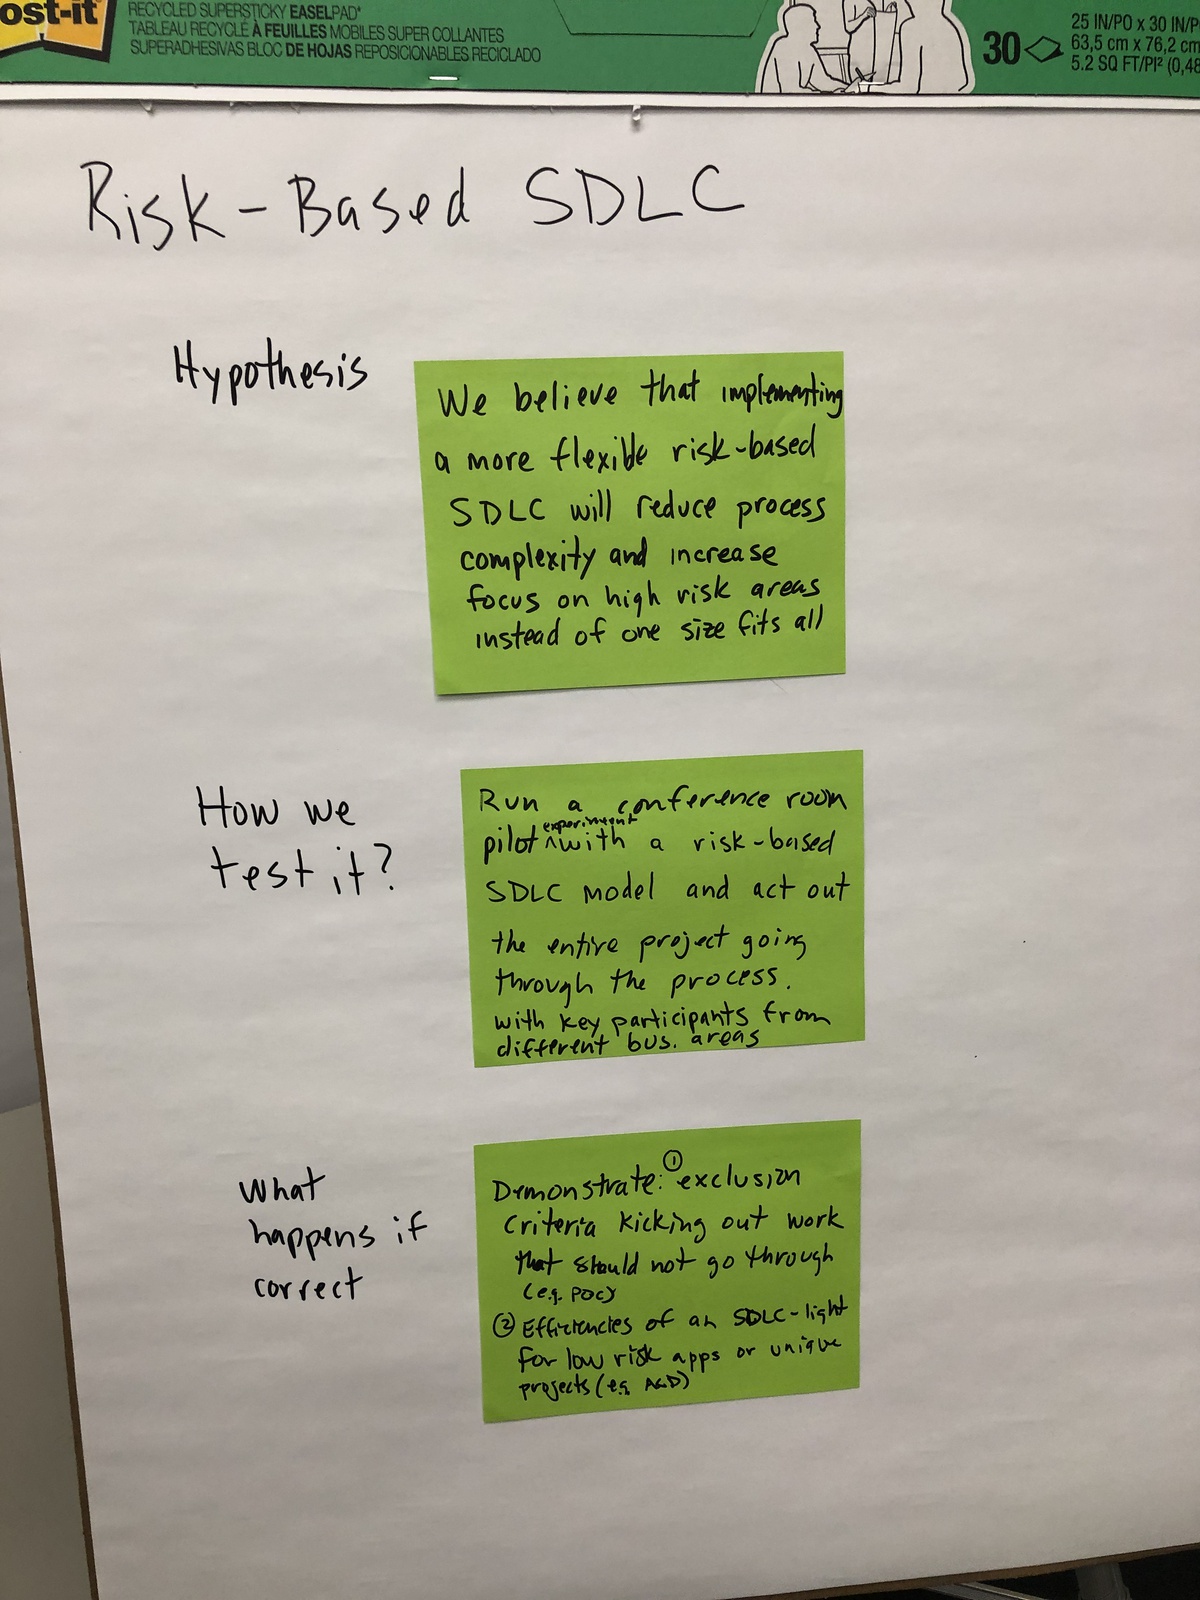 ost-it
RECYCLED SUPERSTICKY EASELPAD*
TABLEAU RECYCLÉ À FEUILLES MOBILES SUPER COLLANTES
SUPERADHESIVAS BLOC DE HOJAS REPOSICIONABLES RECICLADO
30
25 IN/PO x 30 IN/P
63,5 cm x 76,2 cm
5.2 SQ FT/PI² (0,48
Risk-Based SDLC
Hypothesis
We believe that implementing
a more flexible risk-based
SDLC will reduce process
complexity and increase
focus on high risk areas
instead of one size fits all
How we
test it?
Run a conference room
pilot ^experiment with a risk-based
SDLC model and act out
the entire project going
through the process.
with key participants from
different bus. areas
What
happens if
correct
Demonstrate: ① exclusion
criteria kicking out work
that should not go through
(e.g. POC)
② Efficiencies of an SDLC-light
for low risk apps or unique
projects (e.g. A&D)